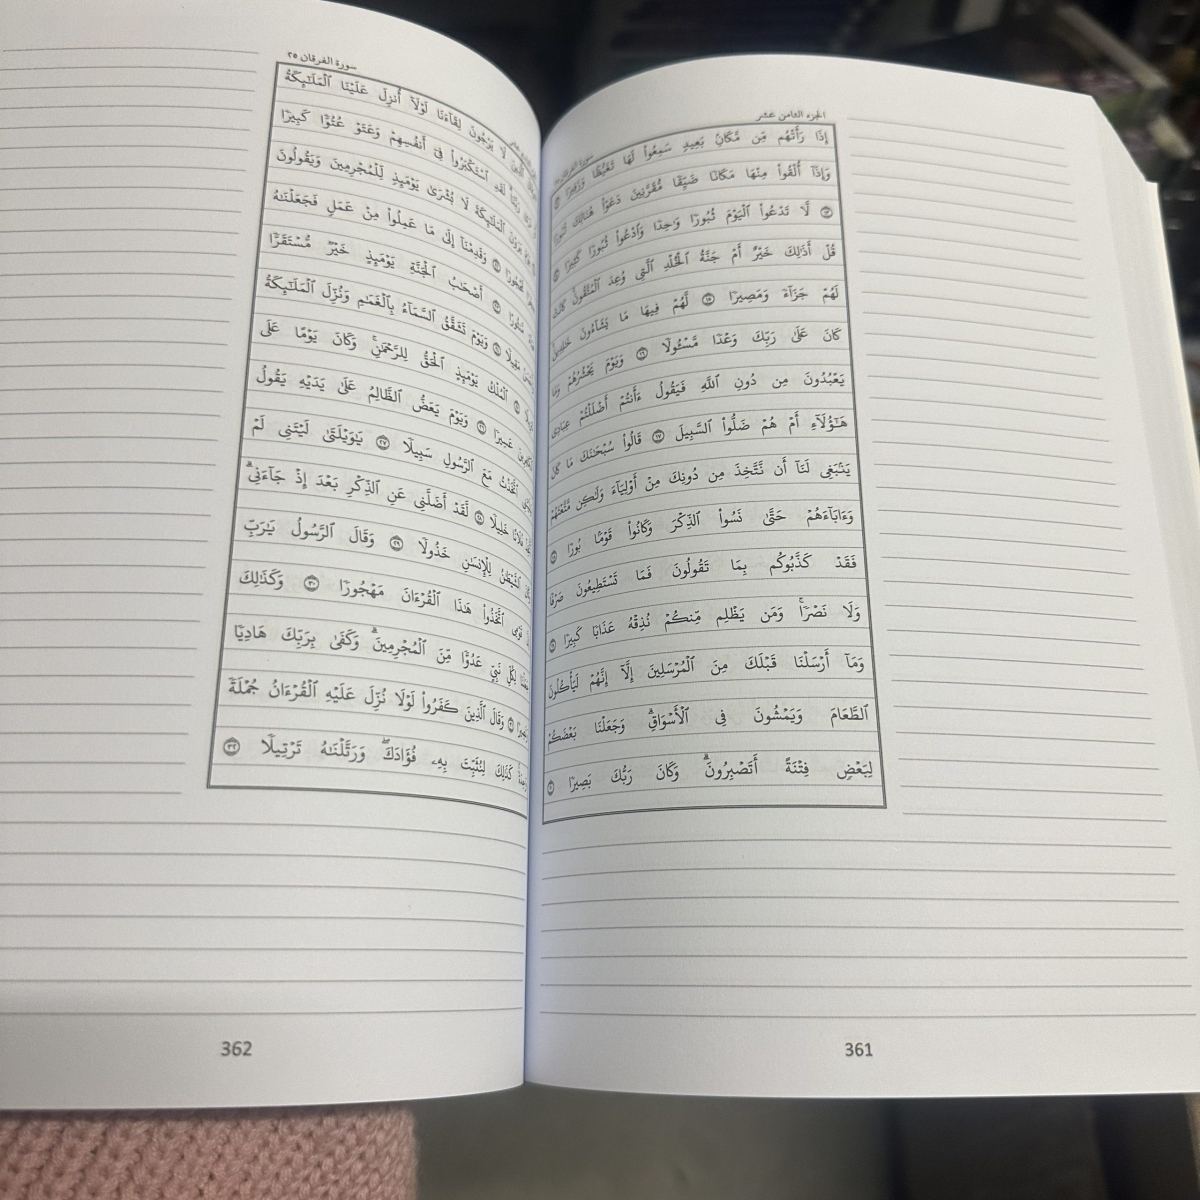 الجزء الثامن عشر
سورة الفرقان ٢٥
إِذَا رَأَتْهُم مِّن مَّكَانٍۭ بَعِيدٍ سَمِعُوا۟ لَهَا تَغَيُّظًا وَزَفِيرًا ١٢
وَإِذَآ أُلْقُوا۟ مِنْهَا مَكَانًا ضَيِّقًا مُّقَرَّنِينَ دَعَوْا۟ هُنَالِكَ ثُبُورًا
١٣ لَّا تَدْعُوا۟ ٱلْيَوْمَ ثُبُورًا وَٰحِدًا وَٱدْعُوا۟ ثُبُورًا كَثِيرًا ١٤
قُلْ أَذَٰلِكَ خَيْرٌ أَمْ جَنَّةُ ٱلْخُلْدِ ٱلَّتِى وُعِدَ ٱلْمُتَّقُونَ ۚ كَانَتْ
لَهُمْ جَزَآءً وَمَصِيرًا ١٥ لَّهُمْ فِيهَا مَا يَشَآءُونَ خَٰلِدِينَ ۚ
كَانَ عَلَىٰ رَبِّكَ وَعْدًا مَّسْـُٔولًا ١٦ وَيَوْمَ يَحْشُرُهُمْ وَمَا
يَعْبُدُونَ مِن دُونِ ٱللَّهِ فَيَقُولُ ءَأَنتُمْ أَضْلَلْتُمْ عِبَادِى
هَٰٓؤُلَآءِ أَمْ هُمْ ضَلُّوا۟ ٱلسَّبِيلَ ١٧ قَالُوا۟ سُبْحَٰنَكَ مَا كَانَ
يَنۢبَغِى لَنَآ أَن نَّتَّخِذَ مِن دُونِكَ مِنْ أَوْلِيَآءَ وَلَٰكِن مَّتَّعْتَهُمْ
وَءَابَآءَهُمْ حَتَّىٰ نَسُوا۟ ٱلذِّكْرَ وَكَانُوا۟ قَوْمًۢا بُورًا ١٨
فَقَدْ كَذَّبُوكُم بِمَا تَقُولُونَ فَمَا تَسْتَطِيعُونَ صَرْفًا
وَلَا نَصْرًا ۚ وَمَن يَظْلِم مِّنكُمْ نُذِقْهُ عَذَابًا كَبِيرًا ١٩
وَمَآ أَرْسَلْنَا قَبْلَكَ مِنَ ٱلْمُرْسَلِينَ إِلَّآ إِنَّهُمْ لَيَأْكُلُونَ
ٱلطَّعَامَ وَيَمْشُونَ فِى ٱلْأَسْوَاقِ ۗ وَجَعَلْنَا بَعْضَكُمْ
لِبَعْضٍ فِتْنَةً أَتَصْبِرُونَ ۗ وَكَانَ رَبُّكَ بَصِيرًا ٢٠
361
سورة الفرقان ٢٥
ٱلَّذِينَ لَا يَرْجُونَ لِقَآءَنَا لَوْلَآ أُنزِلَ عَلَيْنَا ٱلْمَلَٰٓئِكَةُ
رَبَّنَا ۗ لَقَدِ ٱسْتَكْبَرُوا۟ فِىٓ أَنفُسِهِمْ وَعَتَوْ عُتُوًّا كَبِيرًا
يَرَوْنَ ٱلْمَلَٰٓئِكَةَ لَا بُشْرَىٰ يَوْمَئِذٍ لِّلْمُجْرِمِينَ وَيَقُولُونَ
مَّحْجُورًا ٢٢ وَقَدِمْنَآ إِلَىٰ مَا عَمِلُوا۟ مِنْ عَمَلٍ فَجَعَلْنَٰهُ
مَّنثُورًا ٢٣ أَصْحَٰبُ ٱلْجَنَّةِ يَوْمَئِذٍ خَيْرٌ مُّسْتَقَرًّا
مَقِيلًا ٢٤ وَيَوْمَ تَشَقَّقُ ٱلسَّمَآءُ بِٱلْغَمَٰمِ وَنُزِّلَ ٱلْمَلَٰٓئِكَةُ
٢٥ ٱلْمُلْكُ يَوْمَئِذٍ ٱلْحَقُّ لِلرَّحْمَٰنِ ۚ وَكَانَ يَوْمًا عَلَى
عَسِيرًا ٢٦ وَيَوْمَ يَعَضُّ ٱلظَّالِمُ عَلَىٰ يَدَيْهِ يَقُولُ
ٱتَّخَذْتُ مَعَ ٱلرَّسُولِ سَبِيلًا ٢٧ يَٰوَيْلَتَىٰ لَيْتَنِى لَمْ
فُلَانًا خَلِيلًا ٢٨ لَّقَدْ أَضَلَّنِى عَنِ ٱلذِّكْرِ بَعْدَ إِذْ جَآءَنِى ۗ
ٱلشَّيْطَٰنُ لِلْإِنسَٰنِ خَذُولًا ٢٩ وَقَالَ ٱلرَّسُولُ يَٰرَبِّ
قَوْمِى ٱتَّخَذُوا۟ هَٰذَا ٱلْقُرْءَانَ مَهْجُورًا ٣٠ وَكَذَٰلِكَ
لِكُلِّ نَبِىٍّ عَدُوًّا مِّنَ ٱلْمُجْرِمِينَ ۗ وَكَفَىٰ بِرَبِّكَ هَادِيًا
٣١ وَقَالَ ٱلَّذِينَ كَفَرُوا۟ لَوْلَا نُزِّلَ عَلَيْهِ ٱلْقُرْءَانُ جُمْلَةً
كَذَٰلِكَ لِنُثَبِّتَ بِهِۦ فُؤَادَكَ ۖ وَرَتَّلْنَٰهُ تَرْتِيلًا ٣٢
362